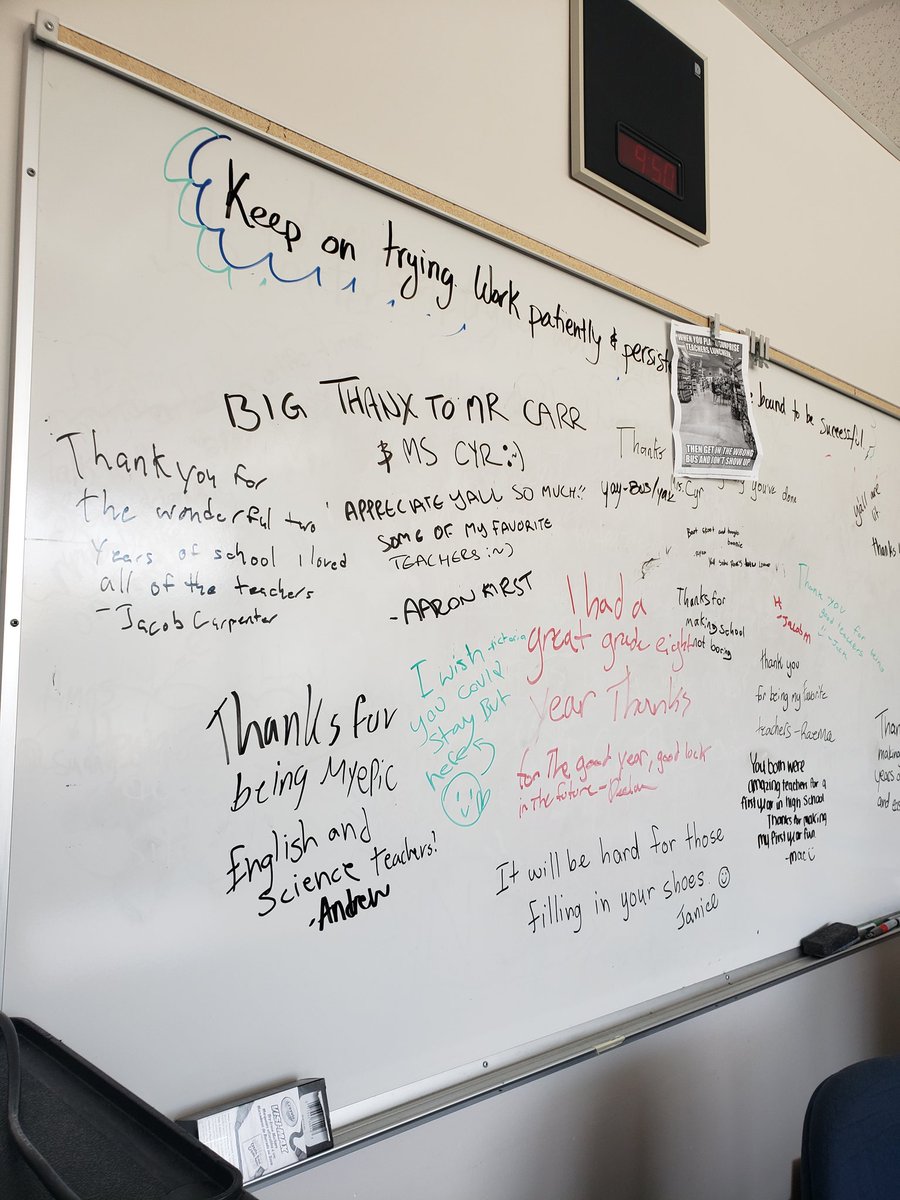 9:50
Keep on trying. Work patiently & persist
bound to be successful.
WHEN YOU PLAN A SURPRISE
TEACHERS LUNCHEON,
THEN GET ON THE WRONG
BUS AND DON'T SHOW UP
BIG THANX TO MR CARR
& MS CYR :~)
APPRECIATE YALL SO MUCH!!
SOME OF MY FAVORITE
TEACHERS :~)
-AARON KIRST
Thank you for
the wonderful two
years of school i loved
all of the teachers
-Jacob Carpenter
Thanks
Cyr
you've done
y'all are
lit
thanks
I had a
great grade eight
year Thanks
for The good year, good lock
in The future -
Thanks for
making school
not boring
-Jacob M
Thank you
for being
good teachers
-Jack
thank you
for being my favorite
teachers -
I wish
you could
Stay But
Thanks for
being My epic
English and
Science teachers!
-Andrew
You both were
amazing teachers for a
first year in high School
Thanks for making
my first year fun
-mac
It will be hard for those
filling in your shoes. ☺
Janice
making
years o